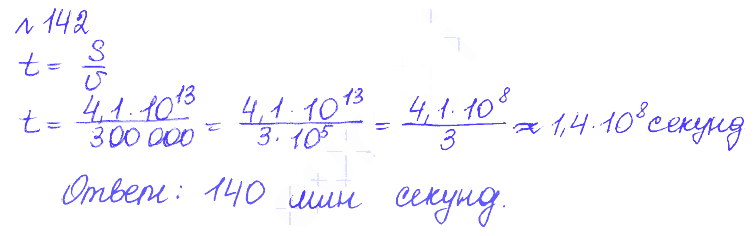 № 142
t = S/v
t = 4,1·10¹³/300 000 = 4,1·10¹³/3·10⁵ = 4,1·10⁸/3 ≈ 1,4·10⁸ секунд
Ответ: 140 млн секунд.